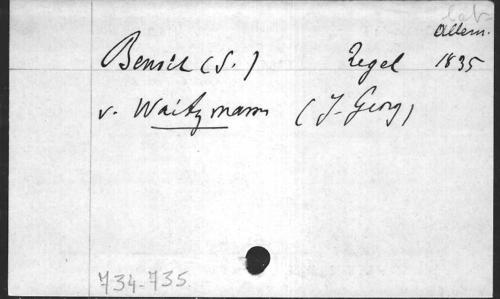 Allem.
Bensil (S.) Zegel 1835
v. Waitzmann (J. Georg)
734-735